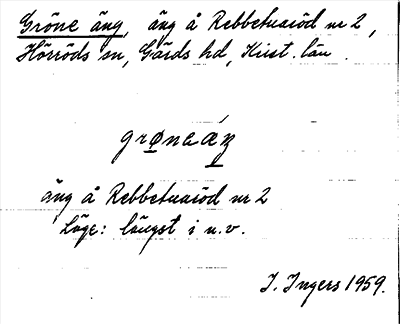 Gröne äng, äng å Rebbetuaröd nr 2,
Hörröds sn, Gärds hd, Krist. län.
grøneæŋ
äng å Rebbetuaröd nr 2
Läge: längst i n.v.
I. Ingers 1959.